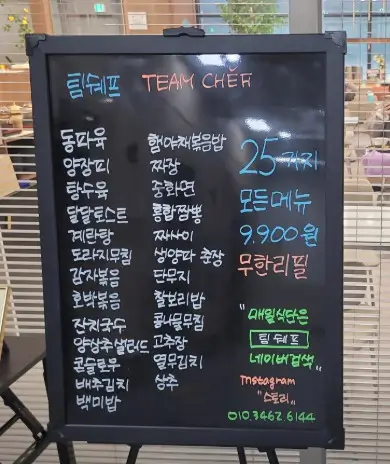 팀쉐프 TEAM CHEF
동파육
양장피
탕수육
달달토스트
계란탕
도라지무침
감자볶음
호박볶음
잔치국수
양상추샐러드
콘슬로우
배추김치
백미밥
햄야채볶음밥
짜장
중화면
홍합짬뽕
짜사이
생양파 춘장
단무지
찰보리밥
콩나물무침
고추장
열무김치
상추
25가지
모든메뉴
9.900원
무한리필
"매일식단은
팀쉐프
네이버검색"
Instagram
"스토리"
010.3462.6144